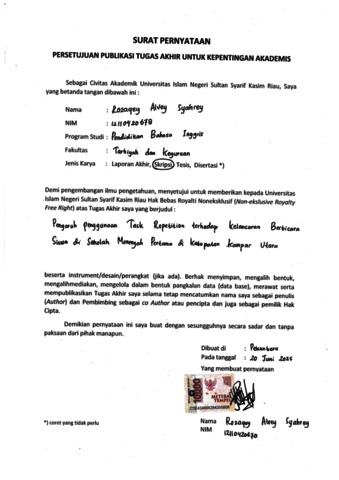 SURAT PERNYATAAN
PERSETUJUAN PUBLIKASI TUGAS AKHIR UNTUK KEPENTINGAN AKADEMIS
Sebagai Civitas Akademik Universitas Islam Negeri Sultan Syarif Kasim Riau, Saya
yang betanda tangan dibawah ini :
Nama : Rosaqey Alvey Syahrey
NIM : 12110420670
Program Studi : Pendidikan Bahasa Inggris
Fakultas : Tarbiyah dan Keguruan
Jenis Karya : Laporan Akhir, Skripsi, Tesis, Disertasi *)
Demi pengembangan ilmu pengetahuan, menyetujui untuk memberikan kepada Universitas
Islam Negeri Sultan Syarif Kasim Riau Hak Bebas Royalti Noneksklusif (Non-ekslusive Royalty
Free Right) atas Tugas Akhir saya yang berjudul :
Pengaruh penggunaan Task Repetition terhadap Kelancaran Berbicara
Siswa di Sekolah Menengah Pertama di Kabupaten Kampar Utara
beserta instrument/desain/perangkat (jika ada). Berhak menyimpan, mengalih bentuk,
mengalihmediakan, mengelola dalam bentuk pangkalan data (data base), merawat serta
mempublikasikan Tugas Akhir saya selama tetap mencatumkan nama saya sebagai penulis
(Author) dan Pembimbing sebagai co Author atau pencipta dan juga sebagai pemilik Hak
Cipta.
Demikian pernyataan ini saya buat dengan sesungguhnya secara sadar dan tanpa
paksaan dari pihak manapun.
Dibuat di : Pekanbaru
Pada tanggal : 20 Juni 2025
Yang membuat pernyataan
10000
METERAI
TEMPEL
*) coret yang tidak perlu
Nama Rosaqey Alvey Syahrey
NIM 12110420670